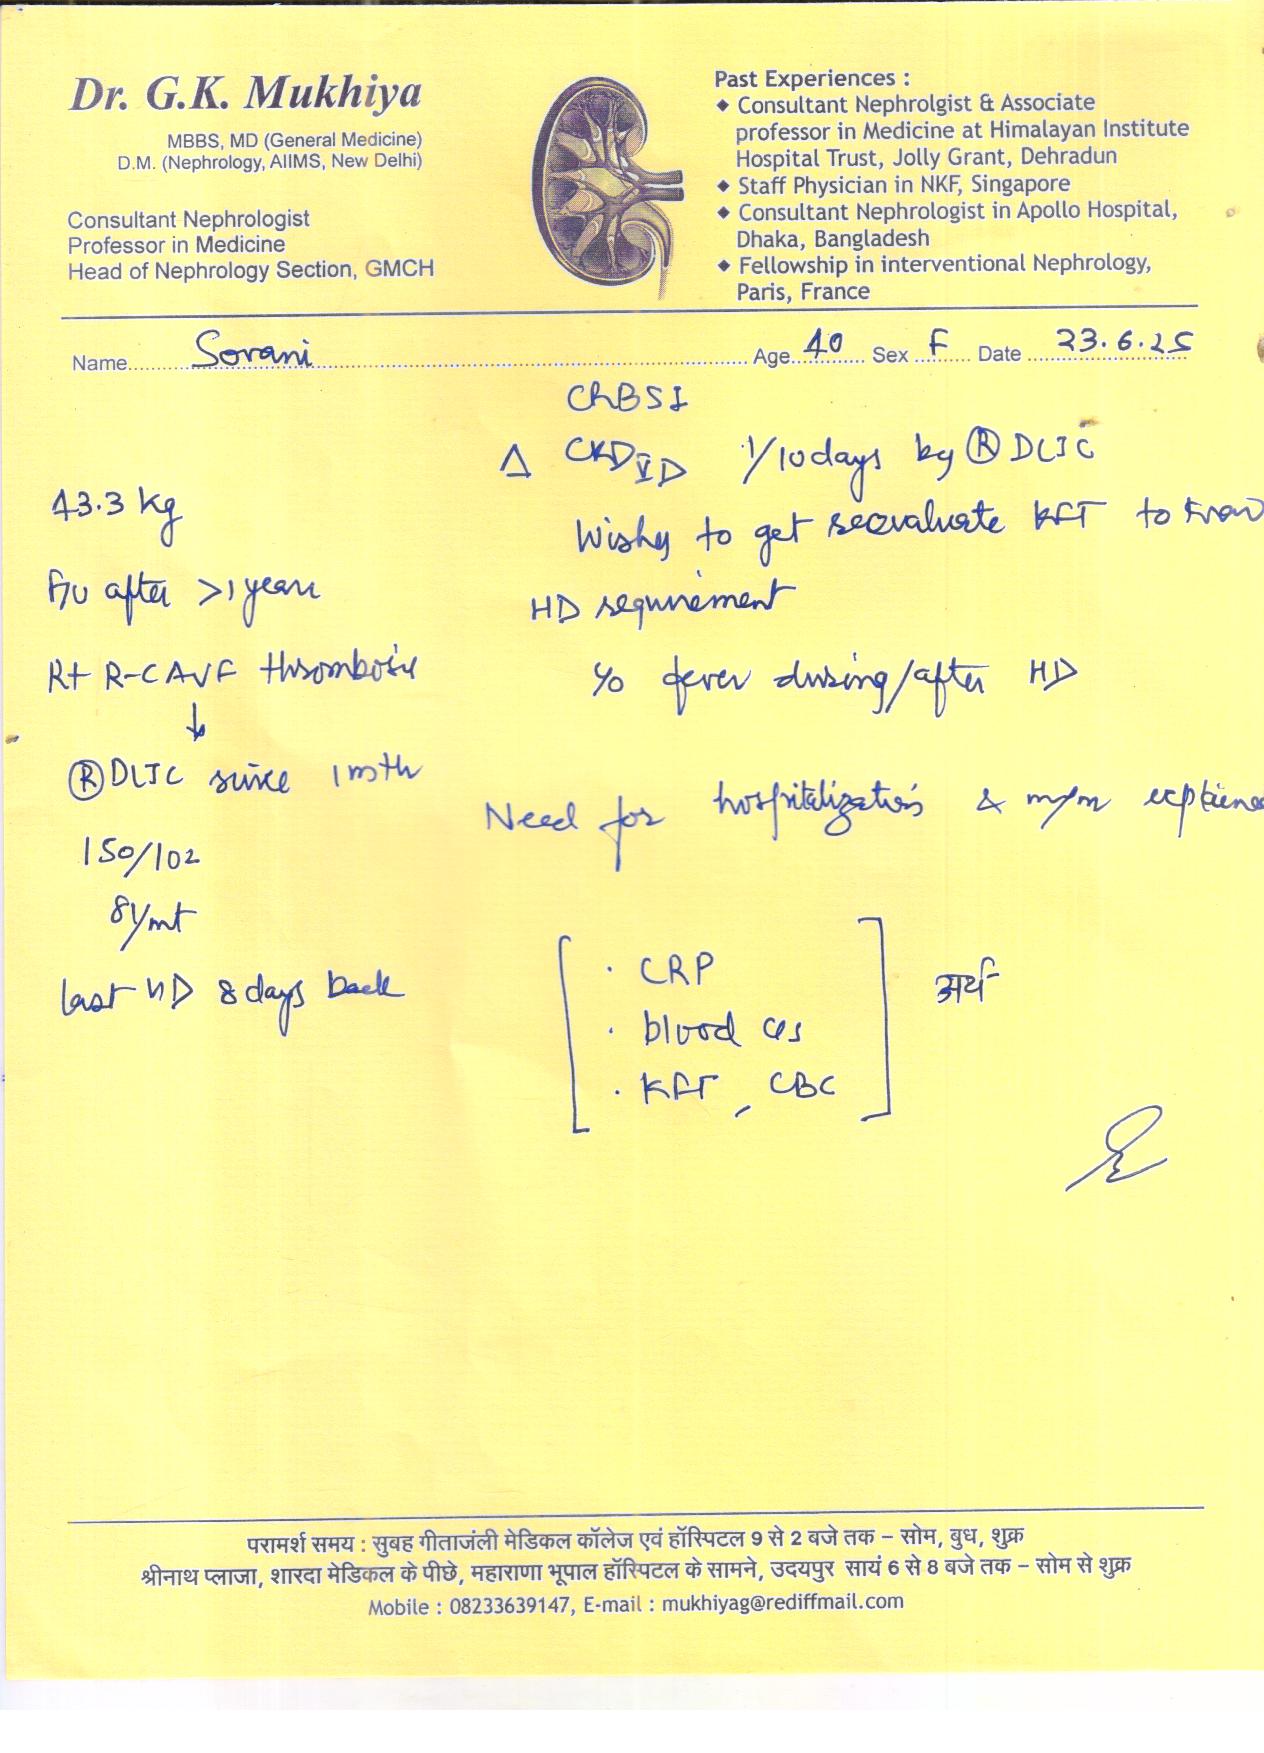 Dr. G.K. Mukhiya
MBBS, MD (General Medicine)
D.M. (Nephrology, AIIMS, New Delhi)
Consultant Nephrologist
Professor in Medicine
Head of Nephrology Section, GMCH
Past Experiences :
◆ Consultant Nephrolgist & Associate
professor in Medicine at Himalayan Institute
Hospital Trust, Jolly Grant, Dehradun
◆ Staff Physician in NKF, Singapore
◆ Consultant Nephrologist in Apollo Hospital,
Dhaka, Bangladesh
◆ Fellowship in interventional Nephrology,
Paris, France
Name Sorani Age 40 Sex F Date 23.6.25
43.3 kg
F/U after >1 year
Rt R-C AVF thrombosis
↓
Ⓡ DLJC since 1 mth
150/102
last HD 8 days back
CRBSI
Δ CKD V D 1/10 days by Ⓡ DLJC
Wishes to get reevaluate KFT to know
HD requirement
fever during/after HD
Need for hospitalization & m/m explained
· CRP
· blood c/s
· KFT, CBC
परामर्श समय : सुबह गीताजंली मेडिकल कॉलेज एवं हॉस्पिटल 9 से 2 बजे तक – सोम, बुध, शुक्र
श्रीनाथ प्लाजा, शारदा मेडिकल के पीछे, महाराणा भूपाल हॉस्पिटल के सामने, उदयपुर सायं 6 से 8 बजे तक – सोम से शुक्र
Mobile : 08233639147, E-mail : mukhiyag@rediffmail.com